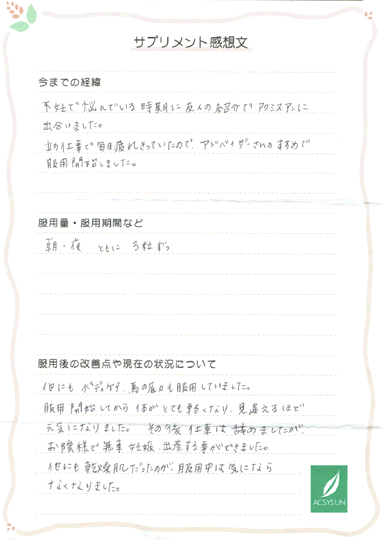 サプリメント感想文
今までの経緯
不妊で悩んでいる時期に友人の紹介でアクシスアンに
出合いました。
立仕事で毎日疲れきっていたので、アドバイザーさんのすすめで
服用開始しました。
服用量・服用期間など
朝・夜 ともに 3粒ずつ
服用後の改善点や現在の状況について
他にも ボディケア、馬の底力も服用していました。
服用開始してから体がとても軽くなり、見違えるほど
元気になりました。 その後 仕事は辞めましたが、
お陰様で無事妊娠、出産する事ができました。
他にも乾燥肌だったのが、服用中は気になら
なくなりました。
ACSYSUN